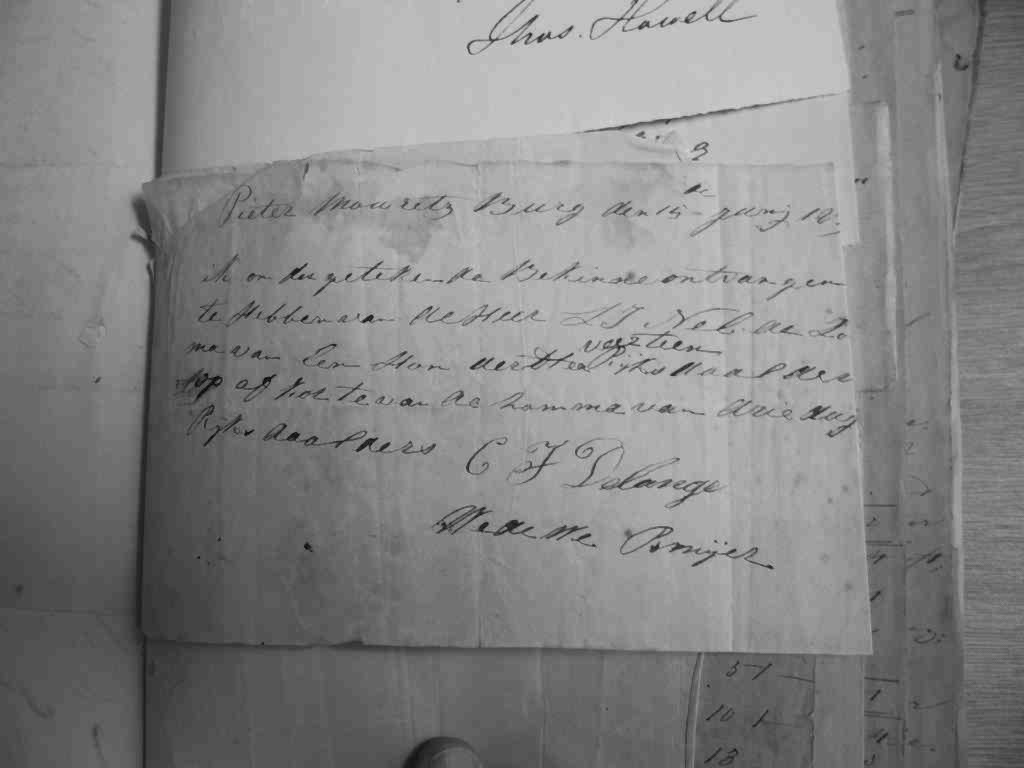 Thos. Howell
3
Pieter Mouretz Burg den 15 Junij 18
ik ondergetekende Bekinde ontvangen
te Hebben van de Heer L J Nel de So
ma van Een Hondert en veertien Rijksdaalders
op af korte van de somma van drie duy
Ryksdaalders C F Delange
Wedewe Bmijer
51
10 1
18